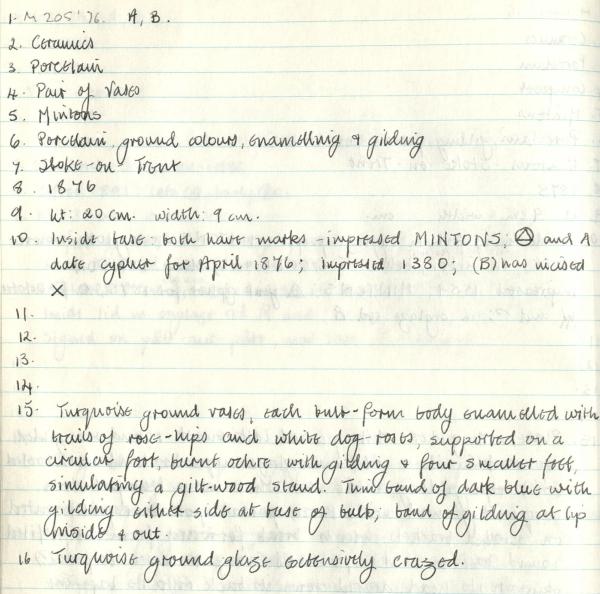 1. M 205'76. A, B.
2. Ceramics
3. Porcelain
4. Pair of Vases
5. Mintons
6. Porcelain, ground colours, enamelling & gilding
7. Stoke-on-Trent
8. 1876
9. ht: 20 cm. width: 9 cm.
10. Inside base: both have marks - impressed MINTONS; and A
date cypher for April 1876; impressed 1380; (B) has incised
X
11.
12.
13.
14.
15. Turquoise ground vases, each bulb-form body enamelled with
trails of rose-hips and white dog-roses, supported on a
circular foot, burnt ochre with gilding & four smaller feet,
simulating a gilt-wood stand. Thin band of dark blue with
gilding either side at base of bulb; band of gilding at lip
inside & out.
16 Turquoise ground glaze extensively crazed.